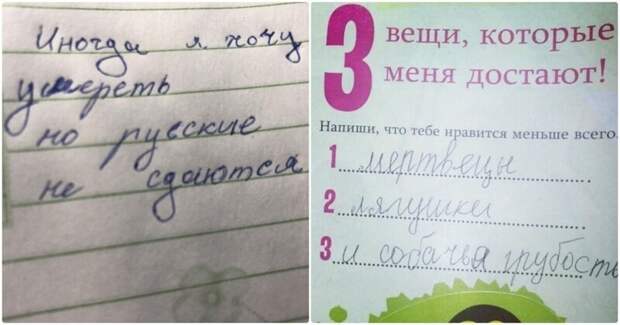 Иногда я хочу
умереть
но русские
не сдаются
3 вещи, которые
меня достают!
Напиши, что тебе нравится меньше всего.
1 мертвецы
2 лягушки
3 и собачья грубость